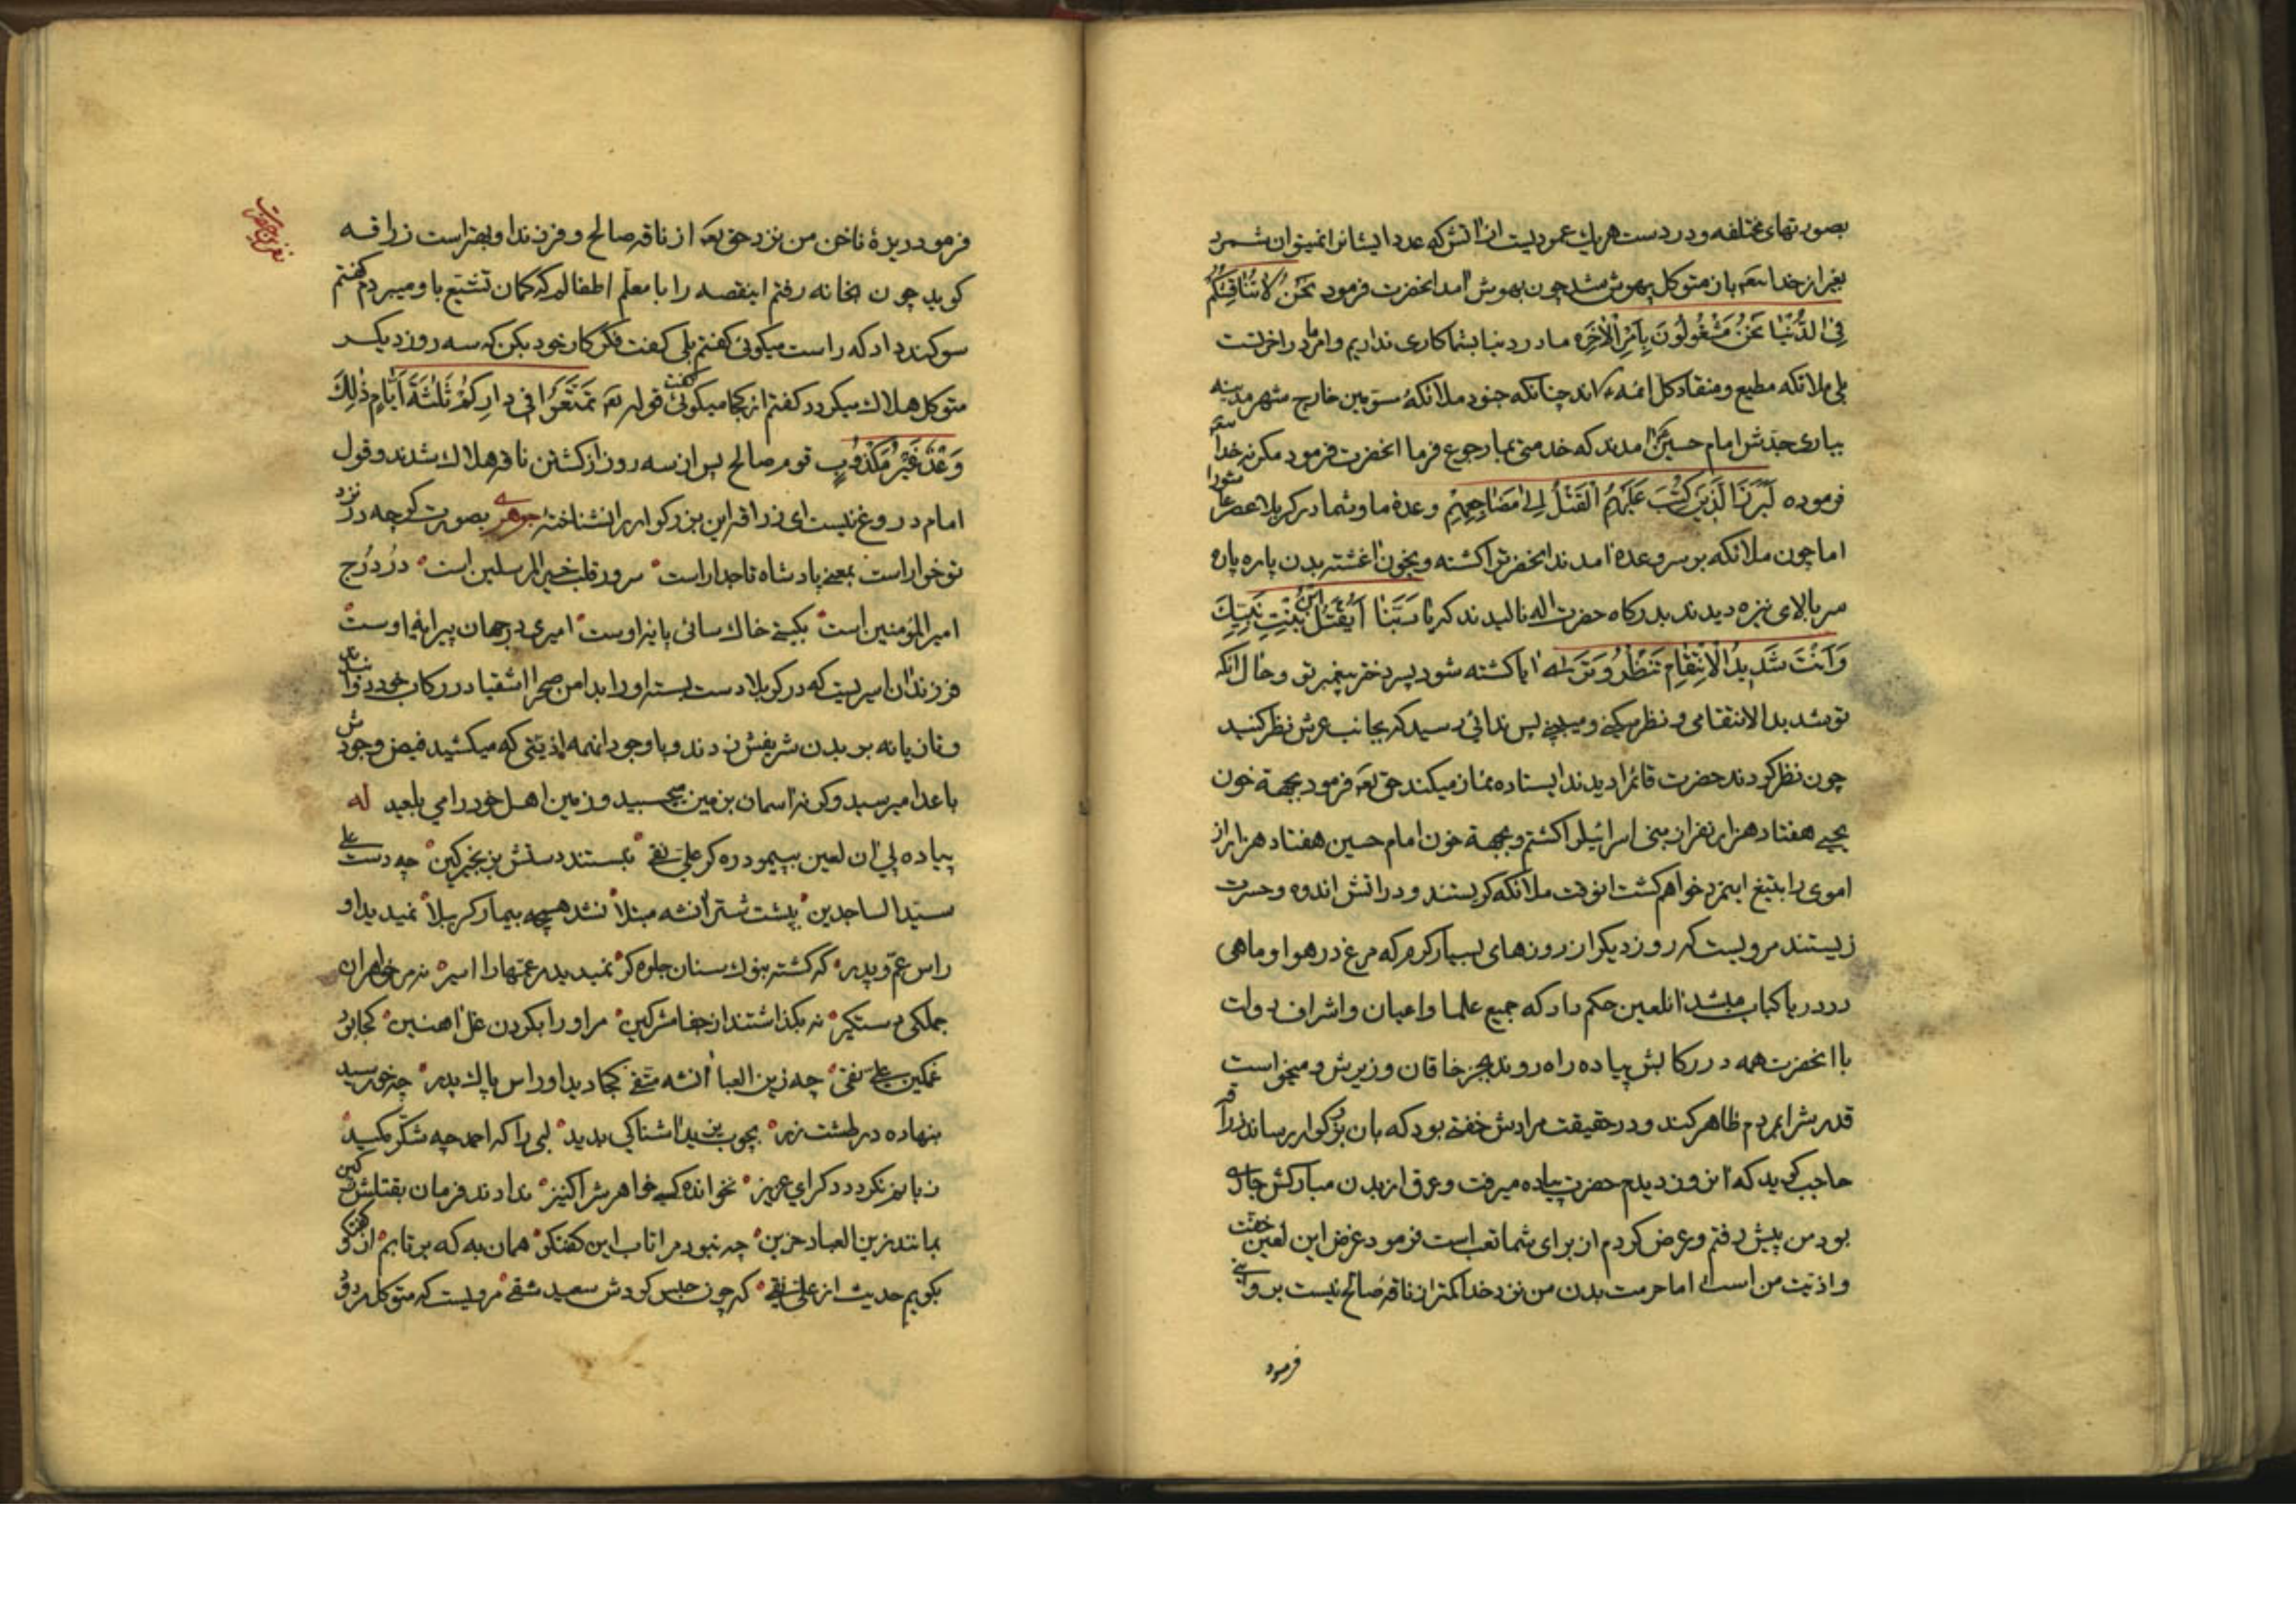 بصورتهای مختلفه و در دست هر یك عمودیست از آتش که عدد ایشانرا نمیتوان شمرد
بغیر از خدا متوکل بیهوش شد چون بهوش آمد آنحضرت فرمود نَحْنُ لا نُنَاقِشُکُمْ
فِی الدُّنْیَا نَحْنُ مَشْغُولُونَ بِأَمْرِ الْآخِرَهِ ما در دنیا بشما کاری نداریم و امر ما در آخرتست
بلی ملائکه مطیع و منقاد کل ائمه اند چنانکه جنود ملائکهٔ مسوّمین خارج شهر مدینه
بیاری جدّش امام حسین آمدند که خدمتی بما رجوع فرما آنحضرت فرمود مگر نه خدا
فرموده لَبَرَزَ الَّذِینَ کُتِبَ عَلَیْهِمُ الْقَتْلُ اِلیٰ مَضَاجِعِهِمْ وعدهٔ ما و شما در کربلا عصر عاشورا
اما چون ملائکه بر سر وعده آمدند آنحضرترا کشته و بخون آغشته بدن پاره پاره
سر بالای نیزه دیدند بدرگاه حضرت اله نالیدند که یا رَبَّنَا أَیُقْتَلُ ابْنُ بِنْتِ نَبِیِّكَ
وَ أَنْتَ شَدِیدُ الْاِنْتِقَامِ تَنْظُرُ وَ تَرَیٰه آیا کشته شود پسر دختر پیغمبر تو و حال آنکه
تو شدید الانتقامی و نظر میکنی و میبینی پس ندائی رسید که بجانب عرش نظر کنید
چون نظر کردند حضرت قائمرا دیدند ایستاده نماز میکند حق تعه فرمود بجهة خون
یحیی هفتاد هزار نفر از بنی اسرائیلرا کشتم و بجهة خون امام حسین هفتاد هزار از
اموی را بتیغ اینمرد خواهم کشت انوقت ملائکه گریستند و در آتش اندوه و حسرت
زیستند مرویست که روز دیگر از روزهای بسیار گرم که مرغ در هوا و ماهی
در دریا کباب میشد آنلعین حکم داد که جمیع علما و اعیان و اشراف دولت
با آنحضرت همه در رکابش پیاده راه روند بجز خاقان وزیرش و میخواست
قدرشرا بمردم ظاهر کند و در حقیقت مرادش خفّتی بود که بان بزرگوار برساند زرافه
حاجب گوید که آنروز دیدم حضرت پیاده میرفت و عرق از بدن مبارکش جاری
بود من پیش رفتم و عرض کردم از برای شما تعب است فرمود غرض این لعین خفّت
و اذیّت من است اما حرمت بدن من نزد خدا کمتر از ناقه صالح نیست بروایتی
فرمود
فرمود ریزهٔ ناخن من نزد حق تعه از ناقه صالح و فرزند او بهتر است زرافه
گوید چون بخانه رفتم اینقصه را با معلّم اطفالم که گمان تشیّع باو میبردم گفتم
سوگند داد که راست میگوئی گفتم بلی گفت فکر کار خود بکن که سه روز دیگر
متوکل هلاك میگردد گفتم از کجا میگوئی گفت قوله تعه تَمَتَّعُوا فِی دَارِکُمْ ثَلٰثَةَ أَیَّامٍ ذٰلِكَ
وَعْدٌ غَیْرُ مَکْذُوبٍ قوم صالح پس از سه روز از کشتن ناقه هلاك شدند و قول
امام دروغ نیست ای زرافه این بزرگوار را نشناختهٔ جوهری بصورت گرچه در نزد
تو خوار است بمعنی پادشاه تاجدار است سرور قلب خیر المرسلین است در درج
امیر المؤمنین است بگیتی خاك سائی پایهٔ اوست امیری در جهان پیرایهٔ اوست
فرزند آن اسیریست که در کربلا دست بسته او را بدامن صحرا اشقیا در رکاب خود دوانیدند
و تازیانه بر بدن شریفش زدند و با وجود آنهمه اذیّتی که میکشید فیض وجودش
باعدا میرسید و گرنه آسمان بزمین میچسبید و زمین اهل خود را می بلعید له
پیاده پی آن لعین بپیمود ره گر علی نقی نبستند دستش بزنجیر کین چه دست علی
سیّد الساجدین بپشت شتر آنشه مبتلا نشد همچه بیمار کربلا نمیدید او
راس عمّ و پدر که گشته بنوك سنان جلوه گر نمیدید عمّتها را اسیر نه مر خواهران
جملگی دستگیر نه بگذاشتند از جفا مشرکین مر او را بگردن غل آهنین کجا بود
غمگین علی نقی چه زین العبا آنشه متّقی کجا دید او راس پاك پدر چه خورشید
بنهاده در طشت زر بچوب یزید آشنا کی بدید لبی را که احمد چه شکّر مکید
زبانم نگردد دگر ای عزیز نخوانده کسی خواهرشرا کنیز ندادند فرمان بقتلش ز کین
بمانند زین العباد حزین چه نبود مرا تاب این گفتگو همان به که برتابم از گفتگو
بگویم حدیث از علی نقی که چون حبس کردش سعید شقی مرویست که متوکل مردود